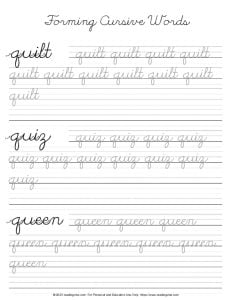 Forming Cursive Words
quilt quilt quilt quilt quilt
quilt quilt quilt quilt quilt quilt
quilt
quiz quiz quiz quiz quiz
quiz quiz quiz quiz quiz quiz
quiz
queen queen queen queen
queen queen queen queen queen
queen
For Personal and Educational Use Only.